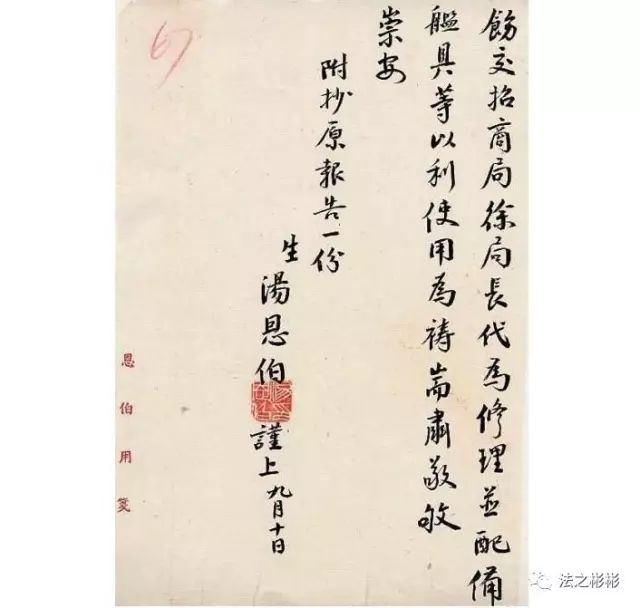 飭交招商局徐局長代為修理並配備
艦具等以利使用為禱耑肅敬敂
崇安
附抄原報告一份
生湯恩伯謹上九月十日
恩伯用箋
法之彬彬